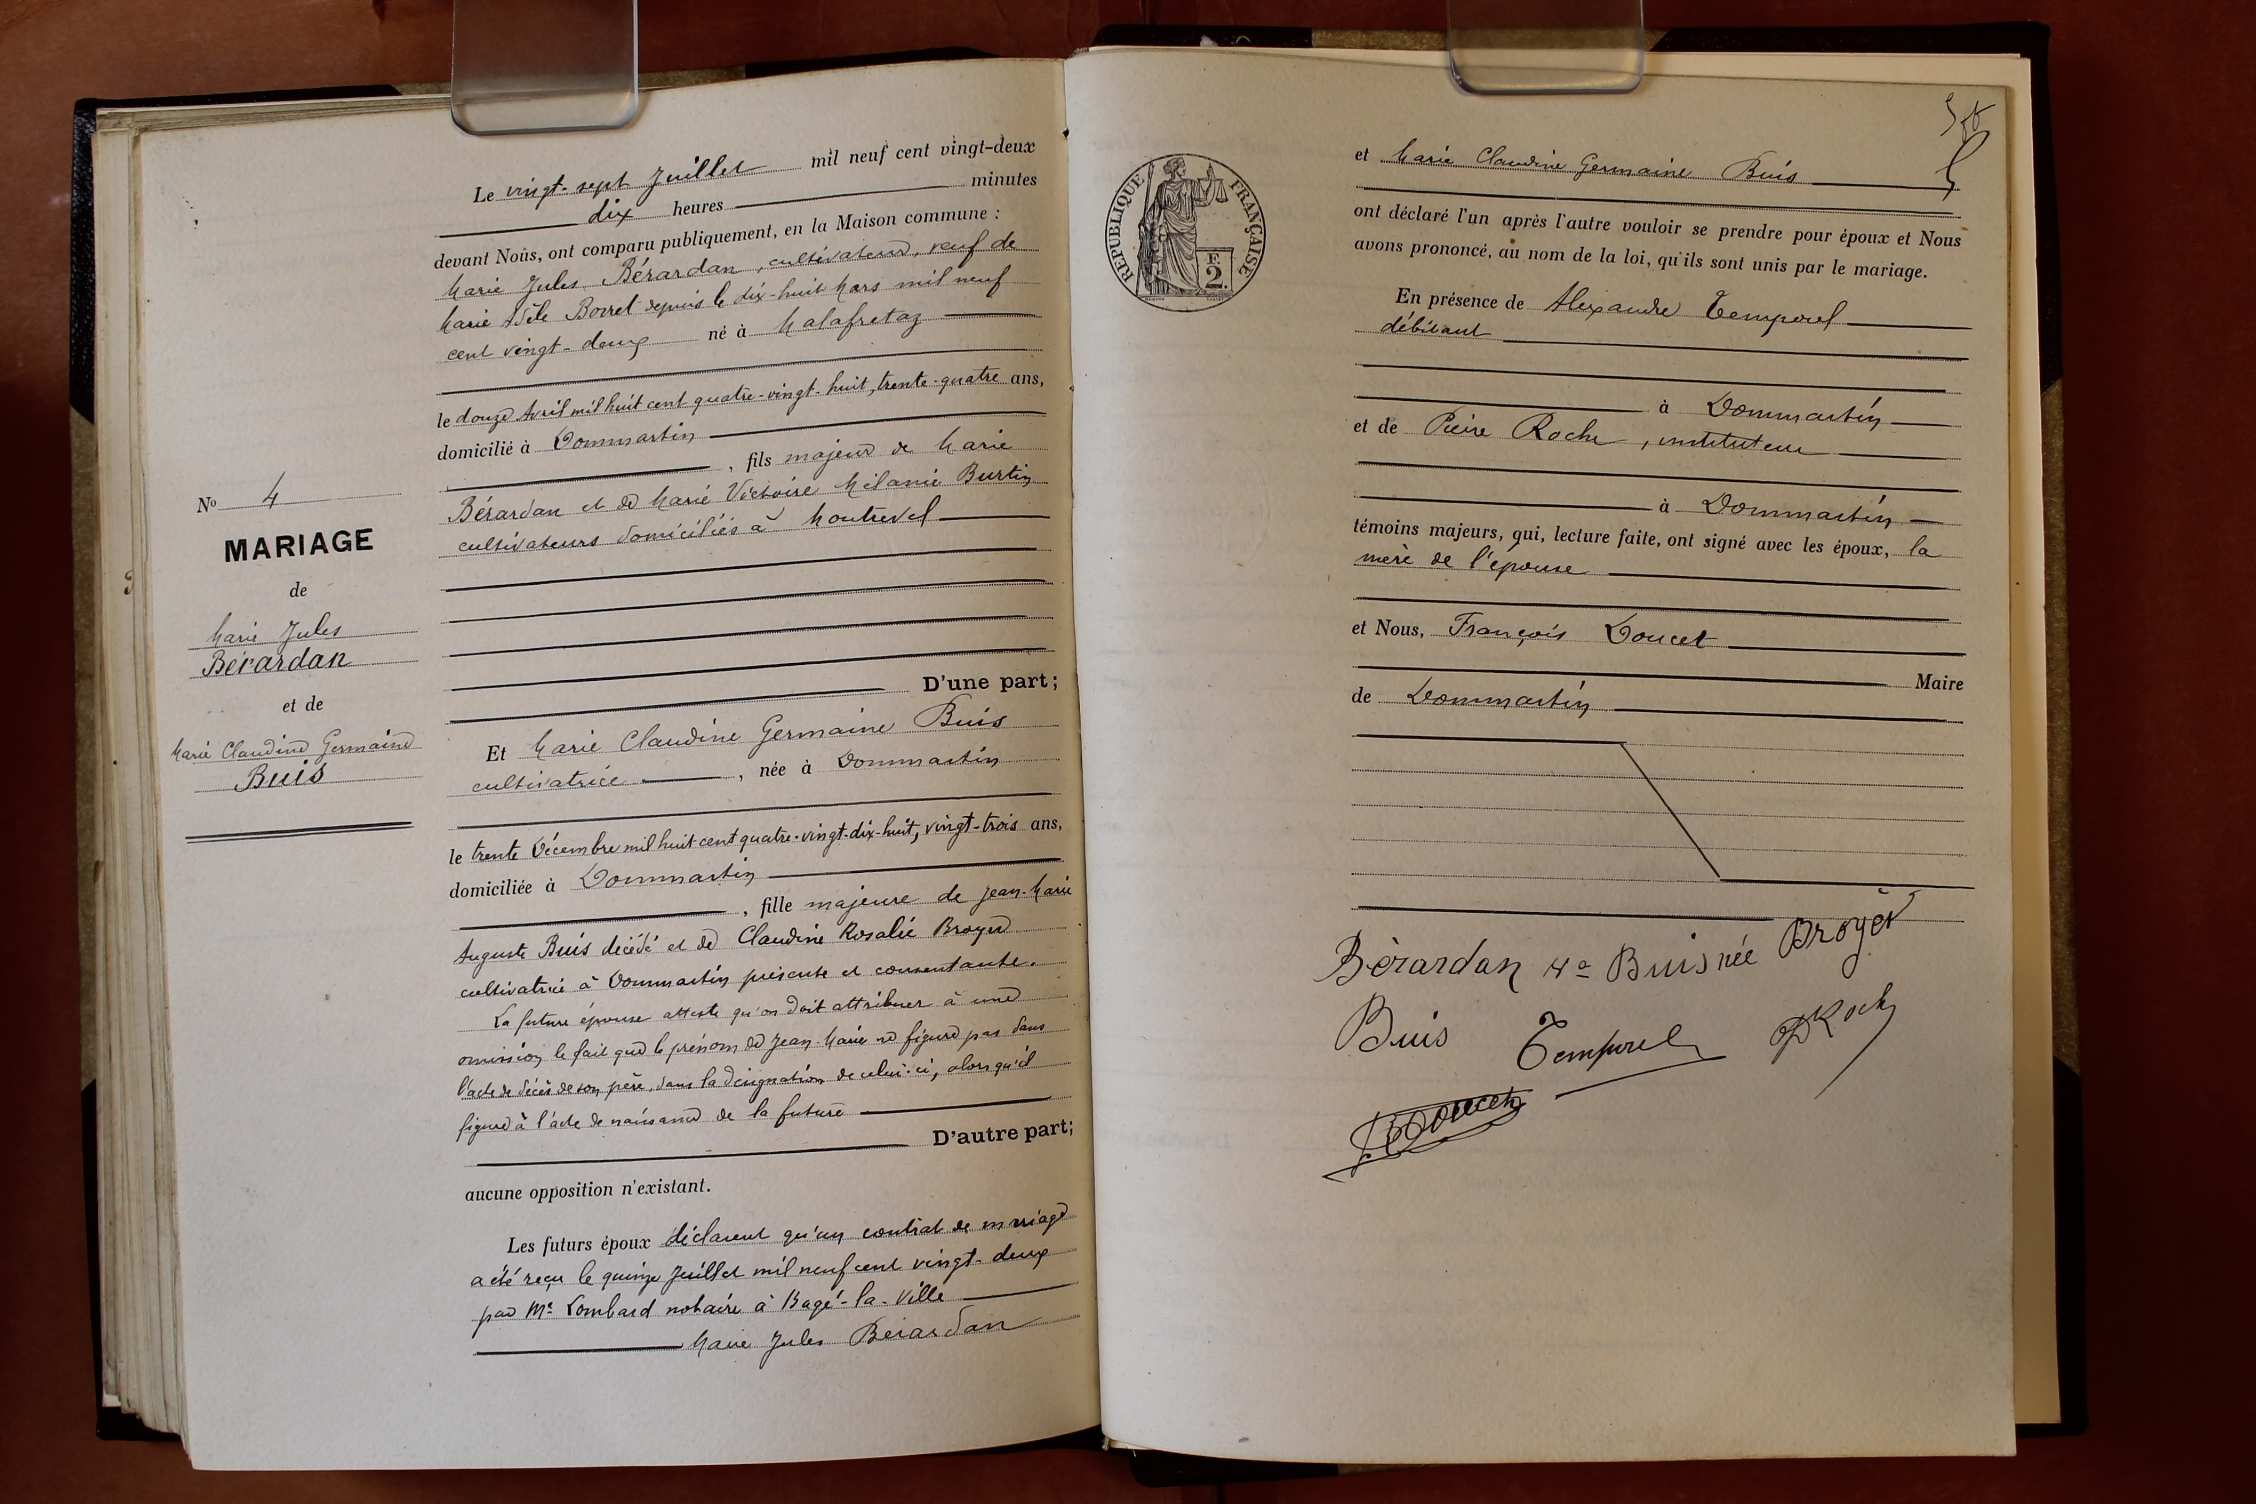 Le vingt-sept Juillet mil neuf cent vingt-deux
dix heures minutes
devant Nous, ont comparu publiquement, en la Maison commune :
Marie Jules Bérardan, cultivateur, veuf de
Marie Adèle Borrel depuis le dix-huit Mars mil neuf
cent vingt-deux né à Malafretaz
le douze Avril mil huit cent quatre-vingt-huit, trente-quatre ans,
domicilié à Dommartin
, fils majeur de Marie
Bérardan et de Marie Victoire Mélanie Burtin
cultivateurs domiciliés à Montrevel
D'une part;
Et Marie Claudine Germaine Buis
cultivatrice, née à Dommartin
le trente Décembre mil huit cent quatre-vingt-dix-huit, vingt-trois ans,
domiciliée à Dommartin
, fille majeure de Jean-Marie
Auguste Buis décédé et de Claudine Rosalie Broyer
cultivatrice à Dommartin présente et consentante.
La future épouse atteste qu'on doit attribuer à une
omission le fait que le prénom de Jean-Marie ne figure pas dans
l'acte de décès de son père, dans la désignation de celui-ci, alors qu'il
figure à l'acte de naissance de la future
D'autre part;
aucune opposition n'existant.
Les futurs époux déclarent qu'un contrat de mariage
a été reçu le quinze Juillet mil neuf cent vingt-deux
par Me Lombard notaire à Bagé-la-Ville
Marie Jules Bérardan
No 4
MARIAGE
de
Marie Jules
Bérardan
et de
Marie Claudine Germaine
Buis
RÉPUBLIQUE FRANÇAISE
F.
2.
et Marie Claudine Germaine Buis
ont déclaré l'un après l'autre vouloir se prendre pour époux et Nous
avons prononcé, au nom de la loi, qu'ils sont unis par le mariage.
En présence de Alexandre Temporel
débitant
à Dommartin
et de Pierre Roche, instituteur
à Dommartin
témoins majeurs, qui, lecture faite, ont signé avec les époux, la
mère de l'épouse
et Nous, François Doucet
Maire
de Dommartin
Bérardan Ve Buis née Broyer
Buis Temporel PRoche
Doucet